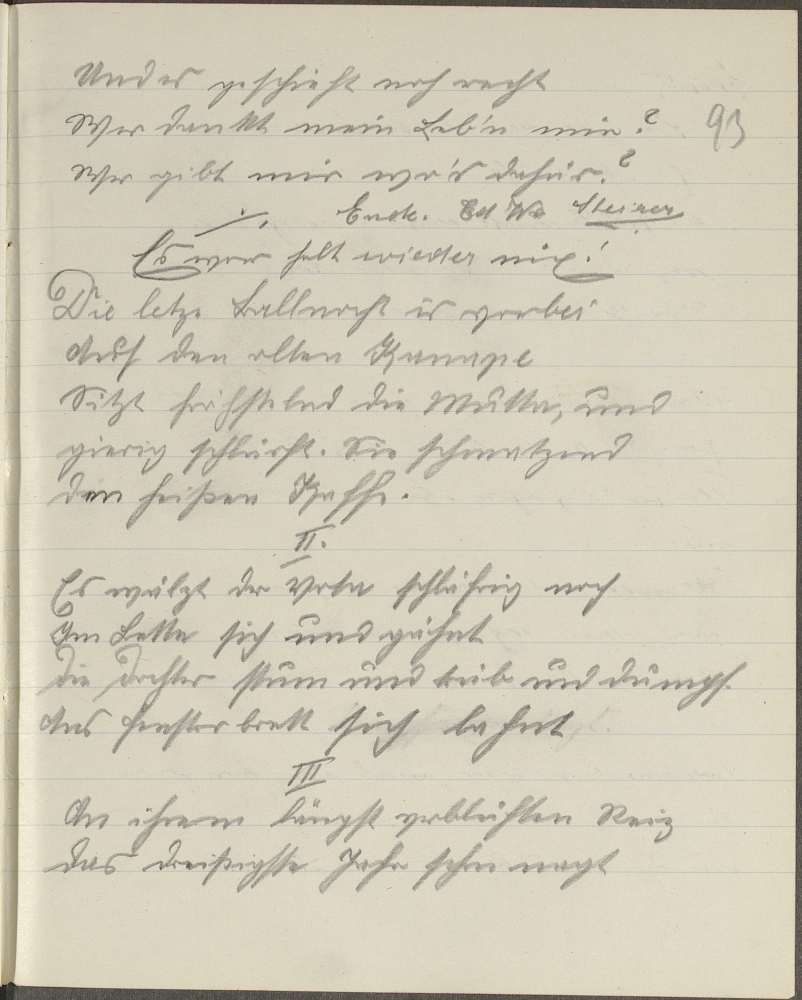 Und es geschieht noch recht
Wer dankt mein Leb'n mir?
93
Wer gibt mir wo's dafür?
Ende. Ed Steiner
Es war halt wieder nix!
Die letze Ballnacht is vorbei
Auf den alten Kanape
Sitzt fröhstelnd die Mutta, und
gierig schlürft. Sie schmatzend
den heißen Kaffe.
II.
Es wälzt der Vota schläfrig noch
Im Bette sich und gähnt
Die Dochter stum und trib und dumpf.
Ans Fensterbrett sich lahnt
III
An ihrem längst verblühten Reiz
das dreißigste Jahr schon nagt